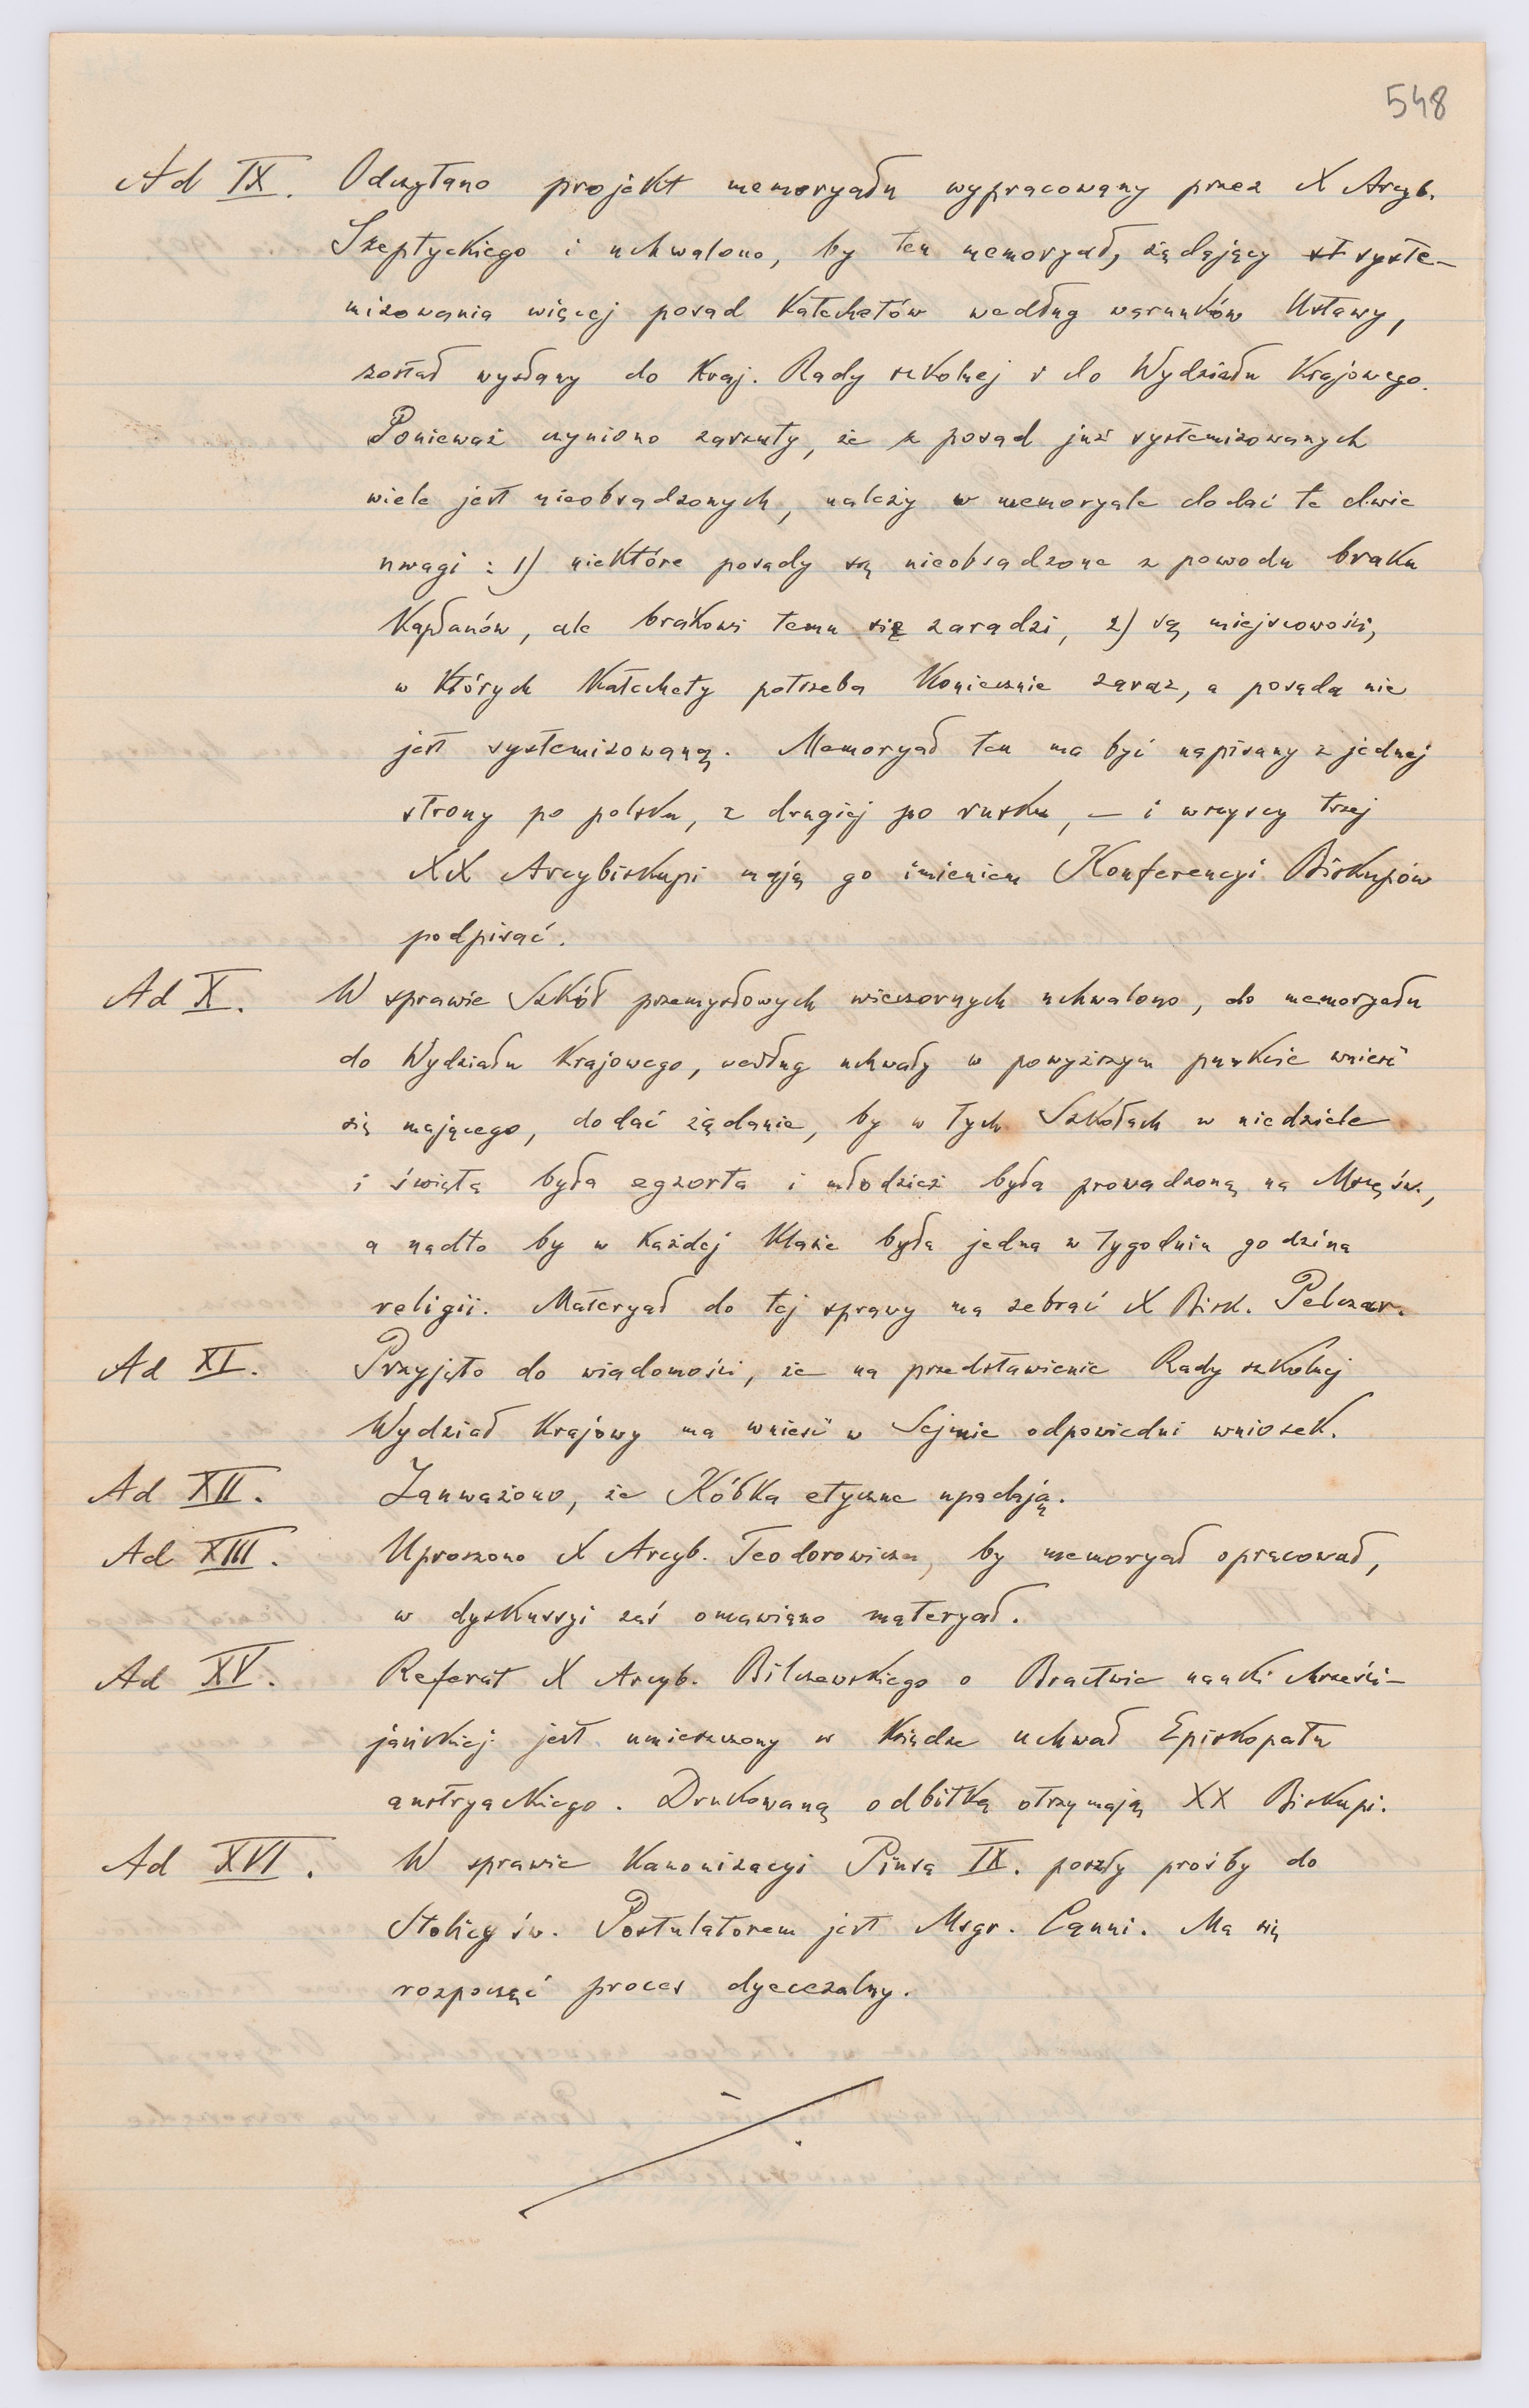 548
Ad IX. Odczytano projekt memoryału wypracowany przez X Arcyb.
Szeptyckiego i uchwalono, by ten memoryał, żądający st syste-
mizowania więcej posad Katechetów według warunków Ustawy,
został wysłany do Kraj. Rady szkolnej i do Wydziału Krajowego.
Ponieważ czyniono zarzuty, że z posad już systemizowanych
wiele jest nieobsadzonych, należy w memoryale dodać te dwie
uwagi : 1) niektóre posady są nieobsadzone z powodu braku
Kapłanów, ale brakowi temu się zaradzi, 2) są miejscowości,
w których Katechety potrzeba Koniecznie zaraz, a posada nie
jest systemizowaną. Memoryał ten ma być napisany z jednej
strony po polsku, z drugiej po rusku, — i wszyscy trzej
XX Arcybiskupi mają go imieniem Konferencyi Biskupów
podpisać.
Ad X. W sprawie Szkół przemysłowych wieczornych uchwalono, do memoryału
do Wydziału Krajowego, według uchwały w powyższym punkcie wnieść
się mającego, dodać żądanie, by w tych Szkołach w niedziele
i święta była egzorta i młodzież była prowadzoną na Mszę św.,
a nadto by w każdej Klasie była jedna w tygodniu godzina
religii. Materyał do tej sprawy ma zebrać X Bisk. Pelczar.
Ad XI. Przyjęto do wiadomości, że na przedstawienie Rady szkolnej
Wydział Krajowy ma wnieść w Sejmie odpowiedni wniosek.
Ad XII. Zauważono, że Kółka etyczne upadają.
Ad XIII. Uproszono X Arcyb. Teodorowicza, by memoryał opracował,
w dyskussyi zaś omawiano materyał.
Ad XV. Referat X Arcyb. Bilczewskiego o Bractwie nauki chrześci-
jańskiej jest umieszczony w Księdze uchwał Episkopatu
austryackiego. Drukowaną odbitkę otrzymają XX Biskupi.
Ad XVI. W sprawie Kanonizacyi Piusa IX. poszły prośby do
Stolicy św. Postulatorem jest Msgr. Canni. Ma się
rozpocząć proces dyecezalny.